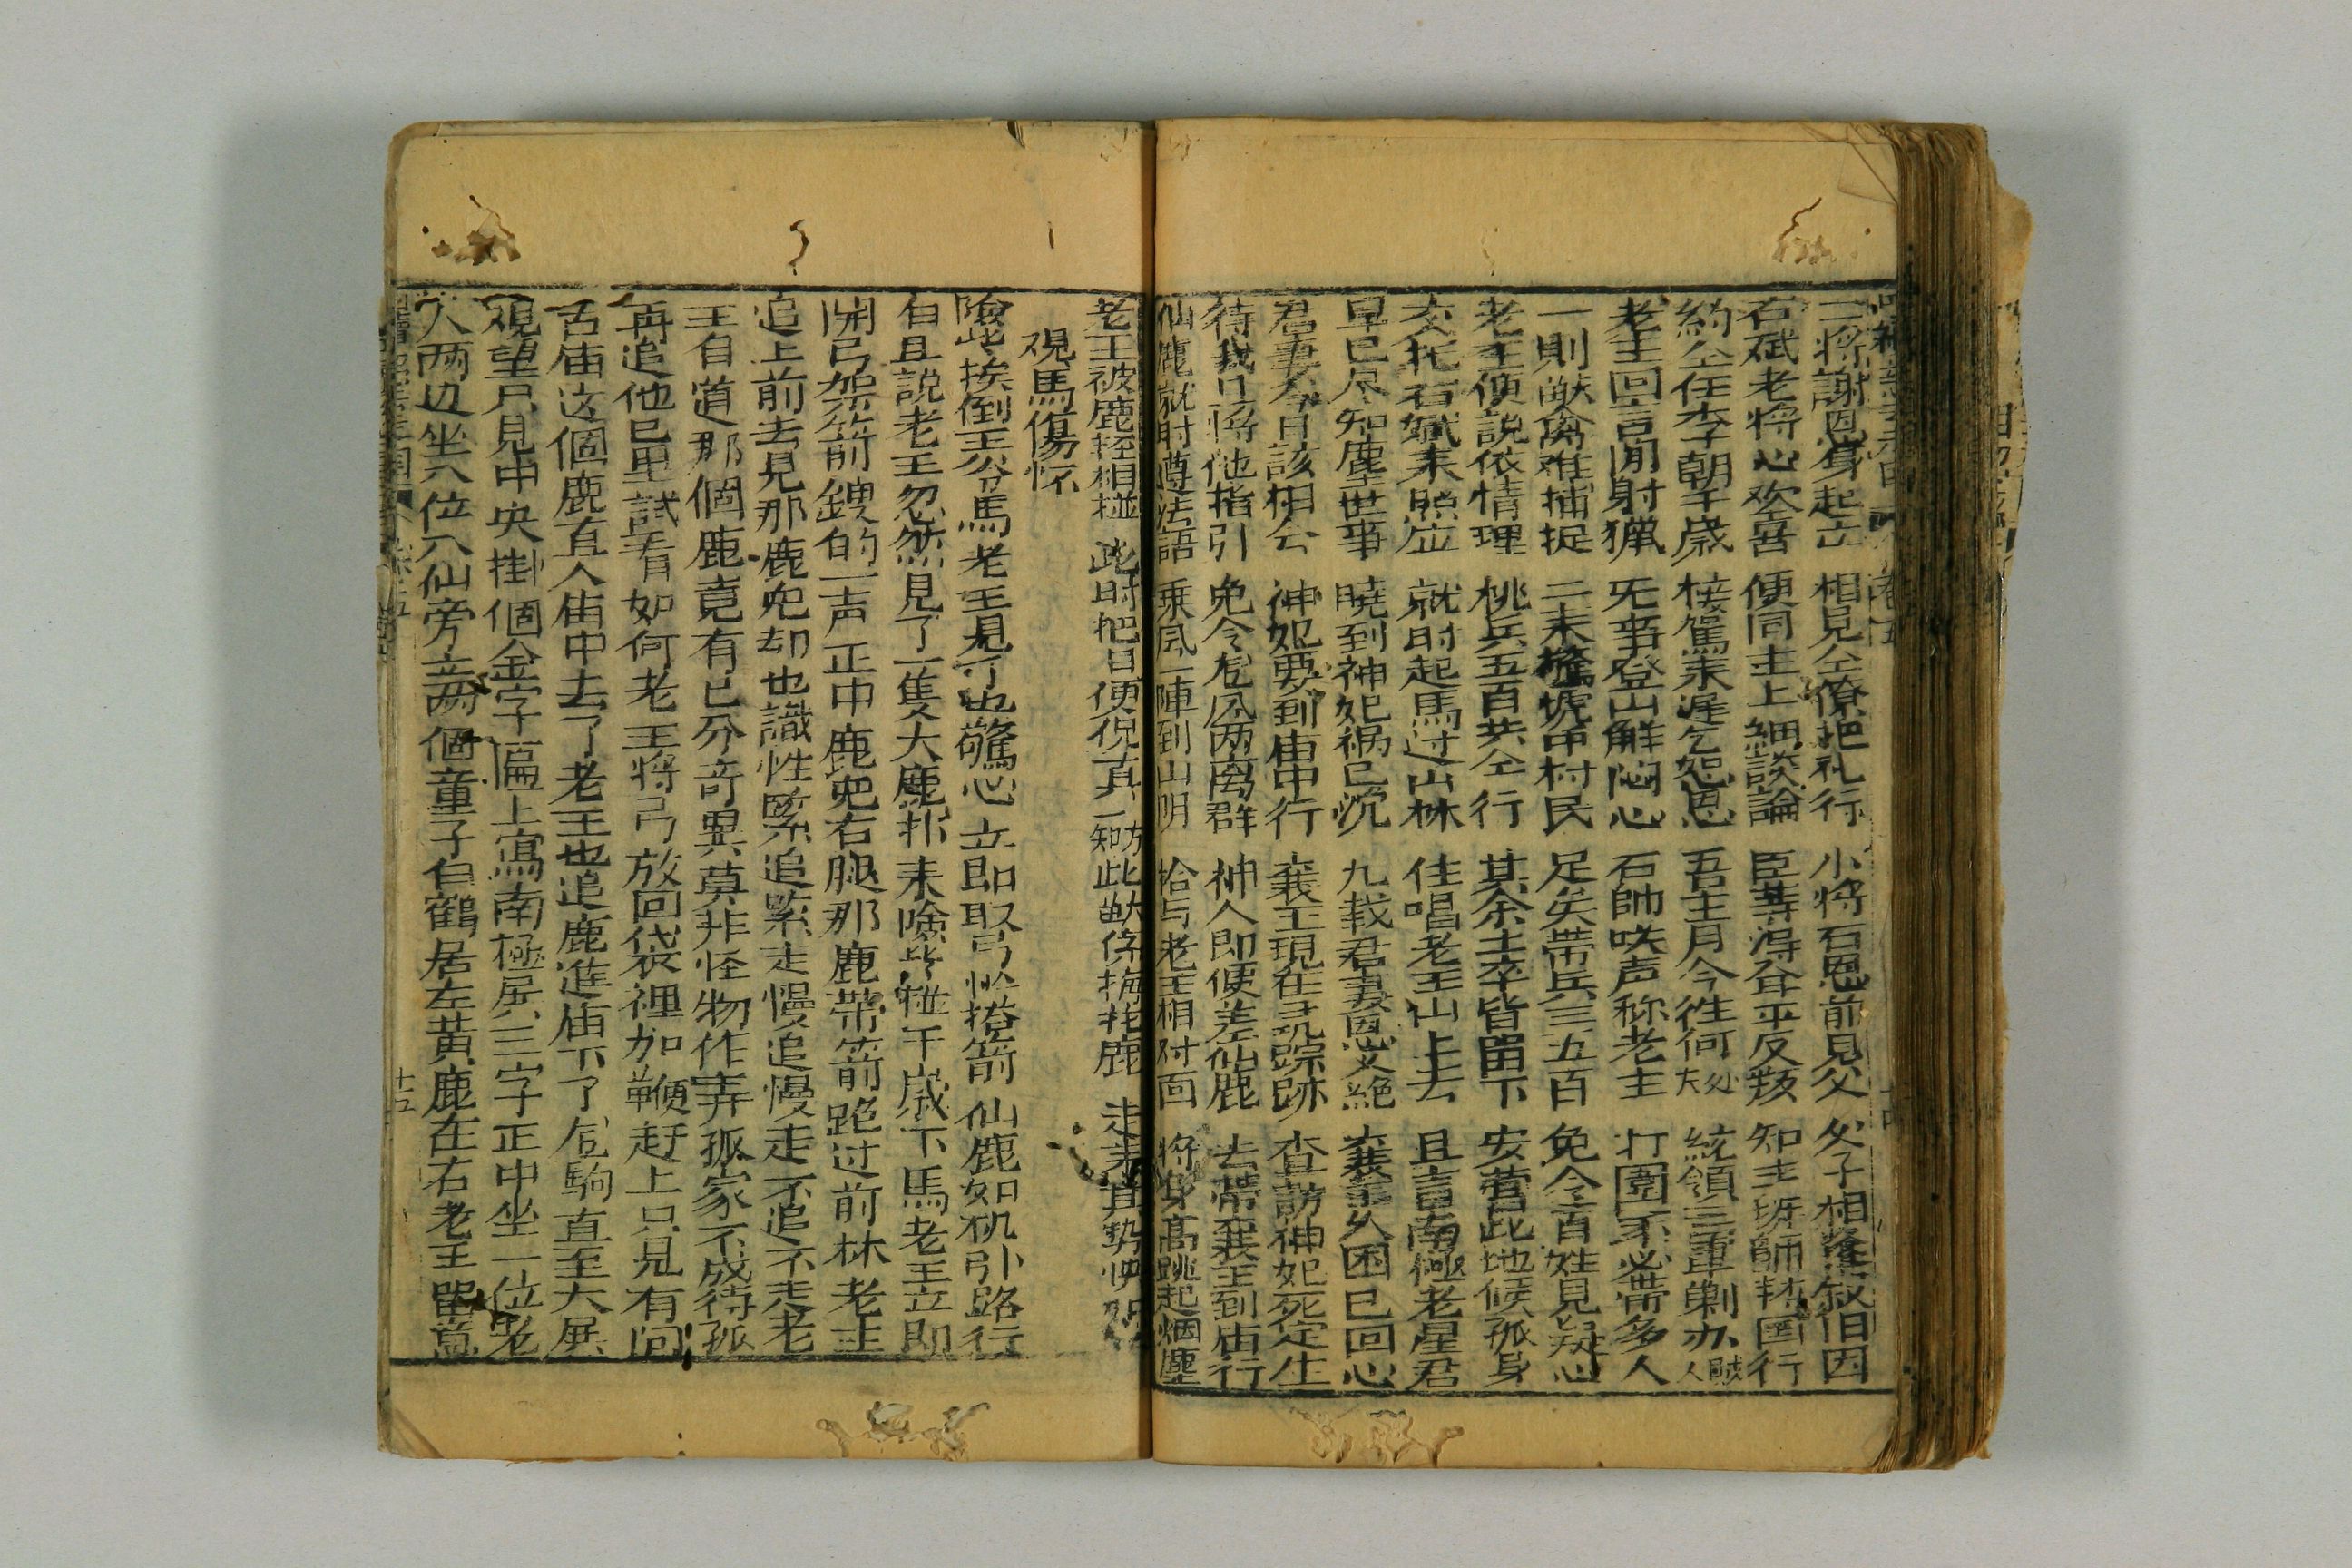 二將謝恩身起立 相見仝僚把礼行 小將石恩前見父 父子相逢叙旧因
石斌老將心欢喜 便同主上細談論 臣等淂令平反叛 知主班師轉国行
約仝任李子朝千歲 接駕來遅乞恕恩 吾主月今徃何处 統領三軍剿办人
老主回言閒射獵 旡事登山解悶心 石帥咲声称老主 打圍不必帶多人
一則猷禽难捕捉 二來驚唬串村民 足矣帶兵三五百 免令百姓見疑心
老王便說依情理 桃兵五百共仝行 其余士卒皆畱下 安营此地候孤身
交托石斌來照应 就时起馬过山林 住唱老王山上去 且言南極老星君
早已尽知塵世事 曉到神妃禍已沉 九载君妻恩义絶 襄王久困已回心
君妻今日該相会 神妃要到庙中行 襄王現在引踪跡 查訪神妃死定生
待我只將他指引 免令君凤两离群 神人即便差仙鹿 去帶襄王到庙行
仙鹿就时遵法語 乘风一陣到山明 恰与老主相对面 將身高跳起烟塵
老王被鹿輕相碰 此时把目便倪真 方知此猷係梅花鹿 走來其势快
覌馬傷怀
險些挨倒王分馬 老王見了也驚心 立即取弓忙搭箭 仙鹿如机引路行
白且説老王忽然見了一隻大鹿扑來險些碰千歲下馬老王立即
開弓架箭鏝的一声正中鹿兜右腿那鹿帶箭跑过前林老主
追上前去見那鹿兜却也識性緊追緊走慢追慢走不追不走老
王自道那個鹿竟有已分奇異莫非怪物作弄孤家不成待孤
再追他已里試看如何老王將弓放回袋裡加鞭赶上只見有间
古庙这個鹿直人庙中去了老王也追鹿進庙下了龙駒直至大展
覌望只見中央掛個金字匾上寫南極展三字正中坐一位老
人两边坐八位八仙旁立两個童子白鶴居左黃鹿在右老王單意
十五